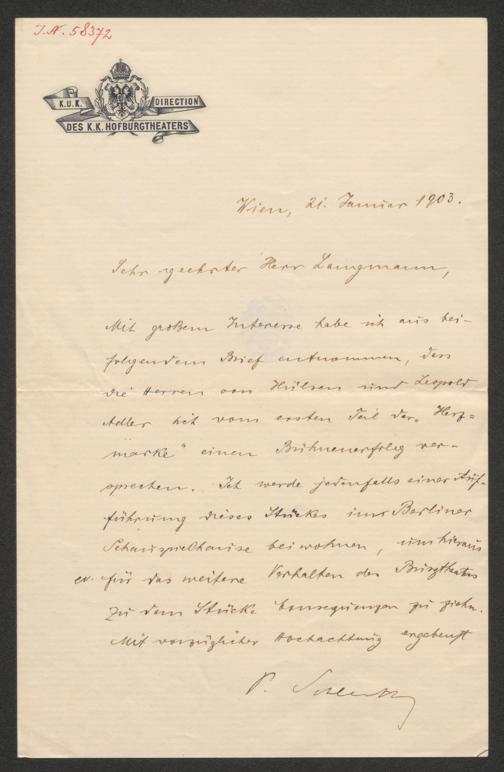 I.N. 58372
K.U.K. DIRECTION
DES K.K. HOFBURGTHEATERS
Wien, 21. Januar 1903.
Sehr geehrter Herr Langmann,
Mit großem Interesse habe ich aus bei-
folgendem Brief entnommen, dass
die Herren von Hülsen und Leopold
Adler sich vom ersten Teil der „Herz-
marke" einen Bühnenerfolg ver-
sprechen. Ich werde jedenfalls einer Auf-
führung dieses Stückes im Berliner
Schauspielhause beiwohnen, um hieraus
ev. für das weitere Verhalten des Burgtheaters
zu dem Stücke Consequenzen zu ziehn.
Mit vorzüglicher Hochachtung ergebenst
P. Schlenther